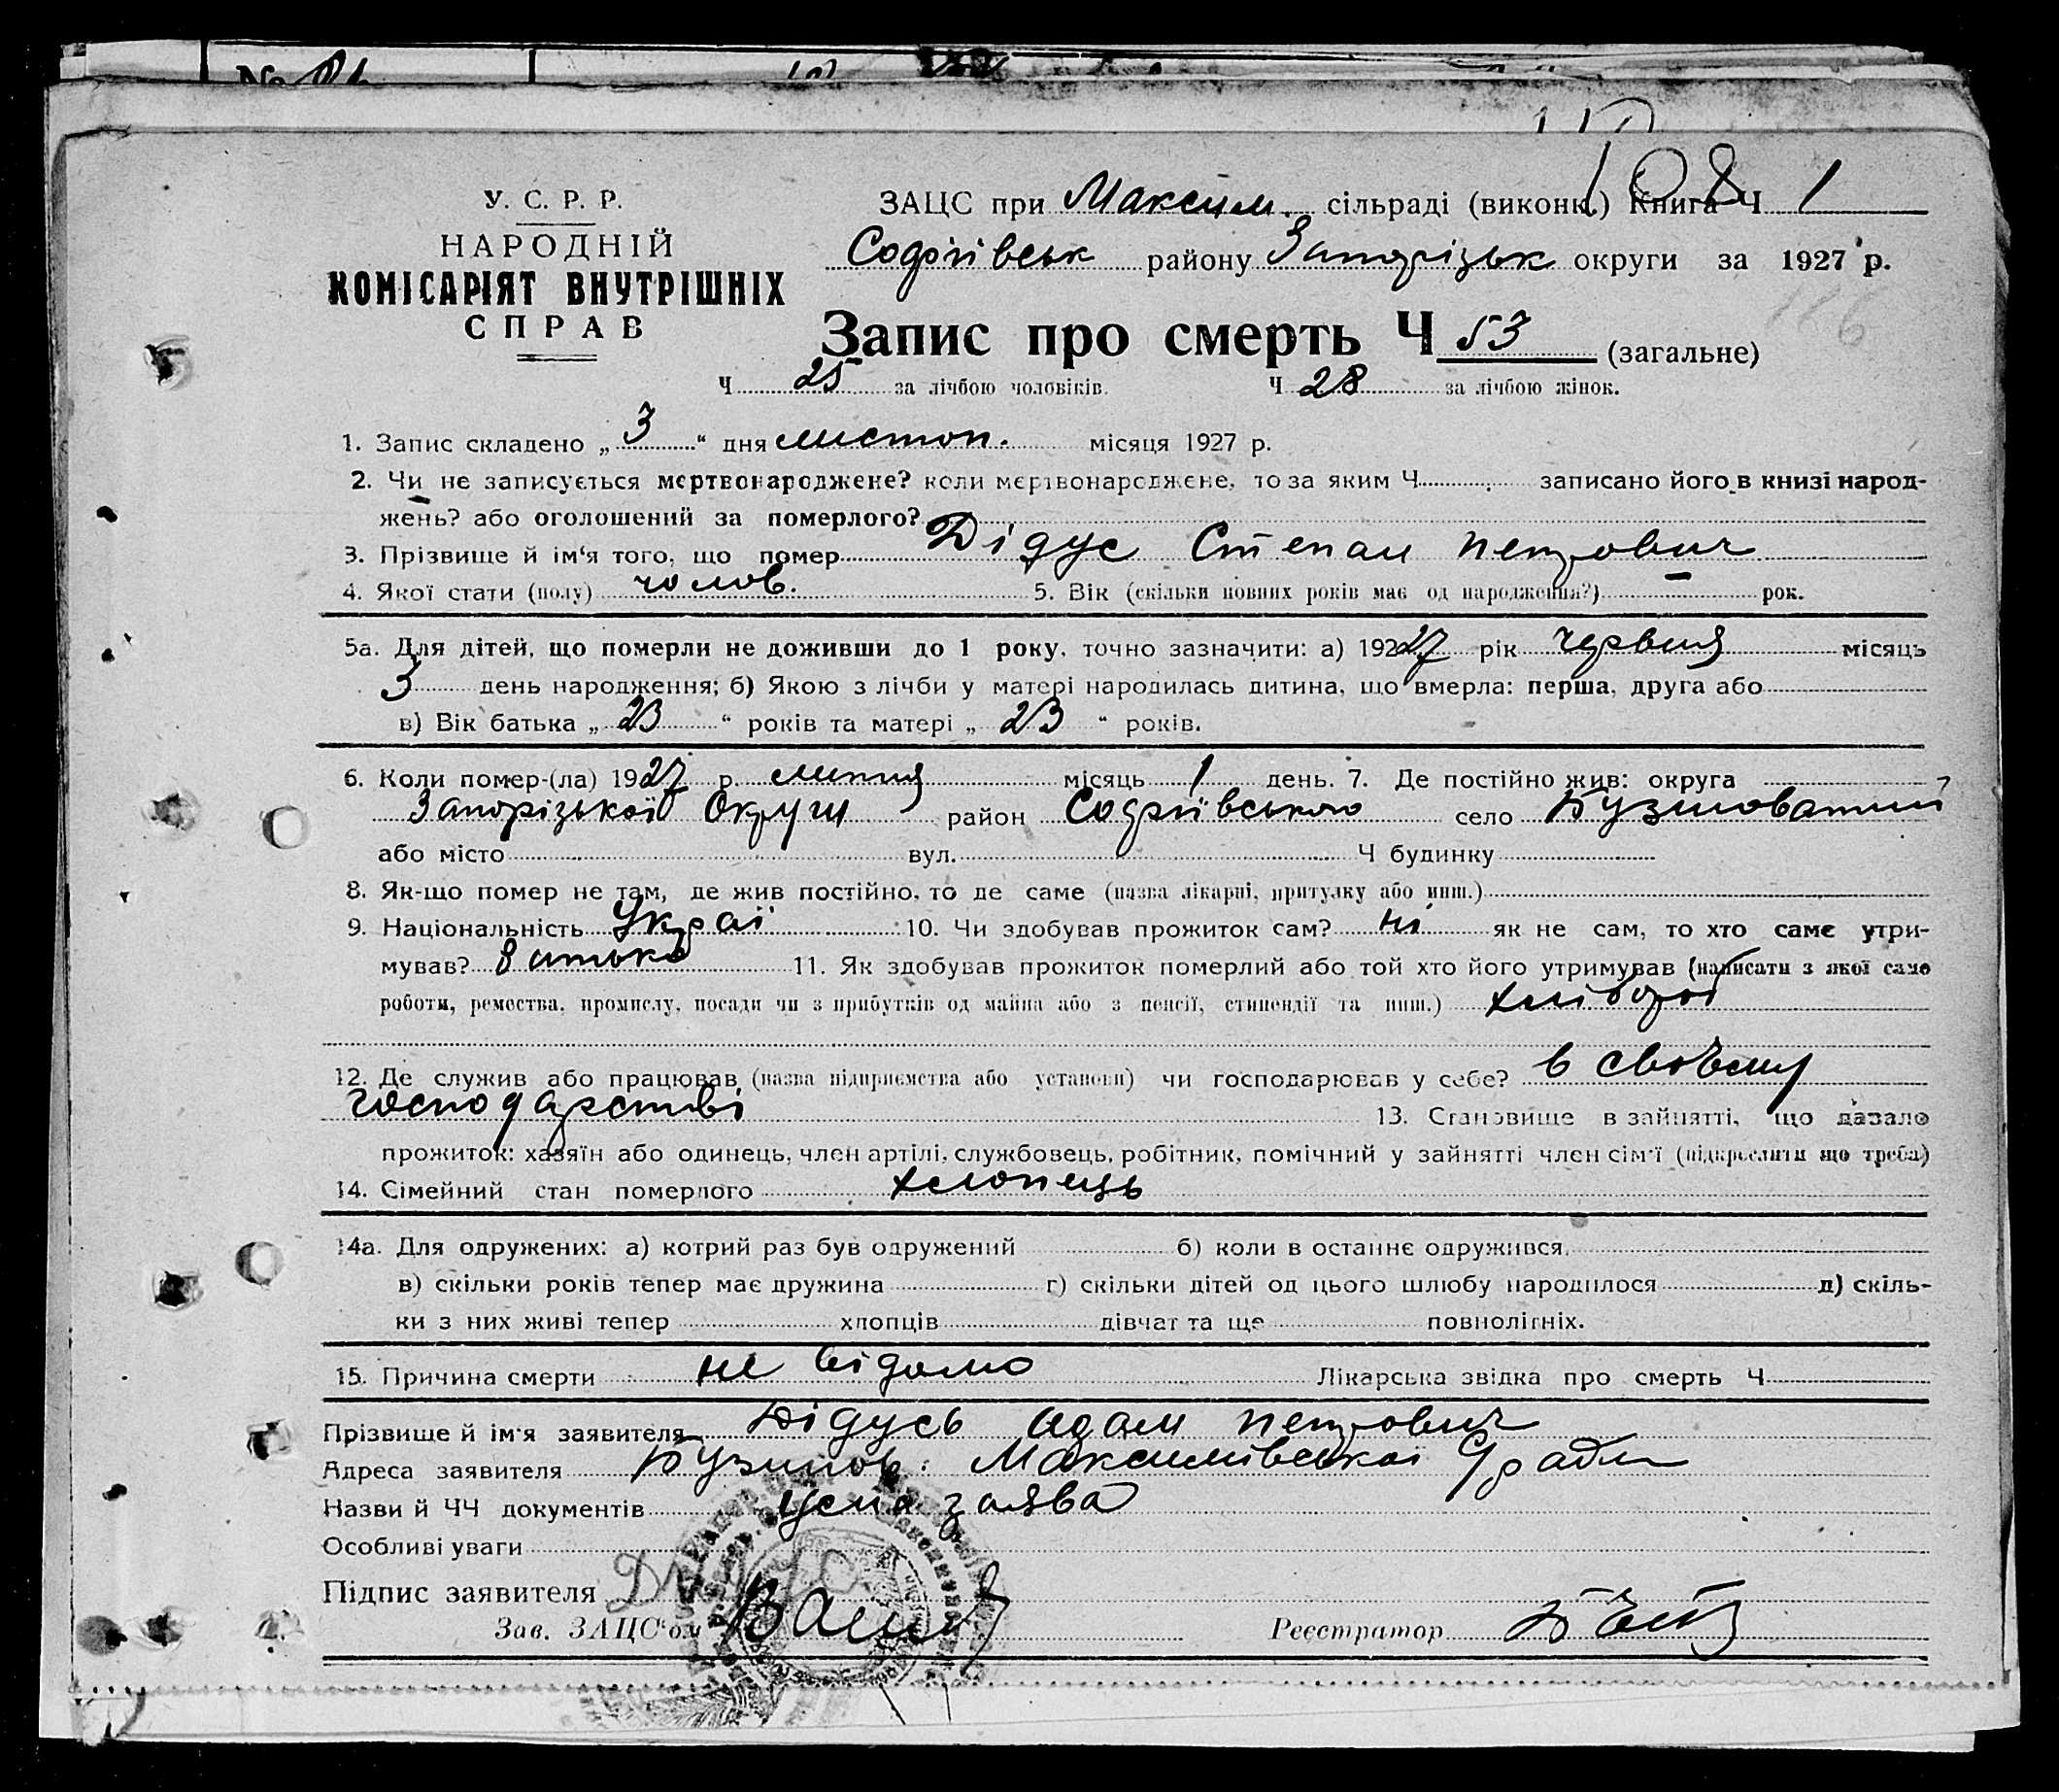 У. С. Р. Р.
НАРОДНІЙ
КОМІСАРІЯТ ВНУТРІШНІХ
СПРАВ
108
ЗАЦС при Максим. сільраді (виконк.) Книга Ч 1
Софіївськ району Запорізьк округи за 1927 р.
116
Запис про смерть Ч 53 (загальне)
Ч 25 за лічбою чоловіків. Ч 28 за лічбою жінок.
1. Запис складено „ 3 “ дня листоп. місяця 1927 р.
2. Чи не записується мертвонароджене? коли мертвонароджене, то за яким Ч записано його в книзі народ-
жень? або оголошений за померлого?
3. Прізвище й ім‘я того, що помер Дідус Степан Петрович
4. Якої стати (полу) чолов. 5. Вік (скільки повних років має од народження?) — рок.
5а. Для дітей, що померли не доживши до 1 року, точно зазначити: а) 1927 рік червня місяць
3 день народження; б) Якою з лічби у матері народилась дитина, що вмерла: перша, друга або
в) Вік батька „ 23 “ років та матері „ 23 “ років.
6. Коли помер-(ла) 1927 р. липня місяць 1 день. 7. Де постійно жив: округа
Запорізької Округи район Софіївського село
або місто вул. Ч будинку
8. Як-що помер не там, де жив постійно, то де саме (назва лікарні, притулку або инш.)
9. Національність Украї 10. Чи здобував прожиток сам? ні як не сам, то хто саме утри-
мував? батько 11. Як здобував прожиток померлий або той хто його утримував (написати з якої саме
роботи, ремества, промислу, посади чи з прибутків од майна або з пенсії, стипендії та инш.) хлібороб
12. Де служив або працював (назва підприємства або установи) чи господарював у себе? в своєму
господарстві 13. Становище в зайнятті, що давало
прожиток: хазяїн або одинець, член артілі, службовець, робітник, помічний у зайнятті член сім‘ї (підкреслити що треба)
14. Сімейний стан померлого хлопець
14а. Для одружених: а) котрий раз був одружений б) коли в останнє одружився
в) скільки років тепер має дружина г) скільки дітей од цього шлюбу народилося д) скіль-
ки з них живі тепер хлопців дівчат та ще повнолітніх.
15. Причина смерти не відомо Лікарська звідка про смерть Ч
Прізвище й ім‘я заявителя Дідусь Адам Петрович
Адреса заявителя Максимівської С/ради
Назви й ЧЧ документів усна заява
Особливі уваги
Підпис заявителя
Зав. ЗАЦС‘ом
Реєстратор